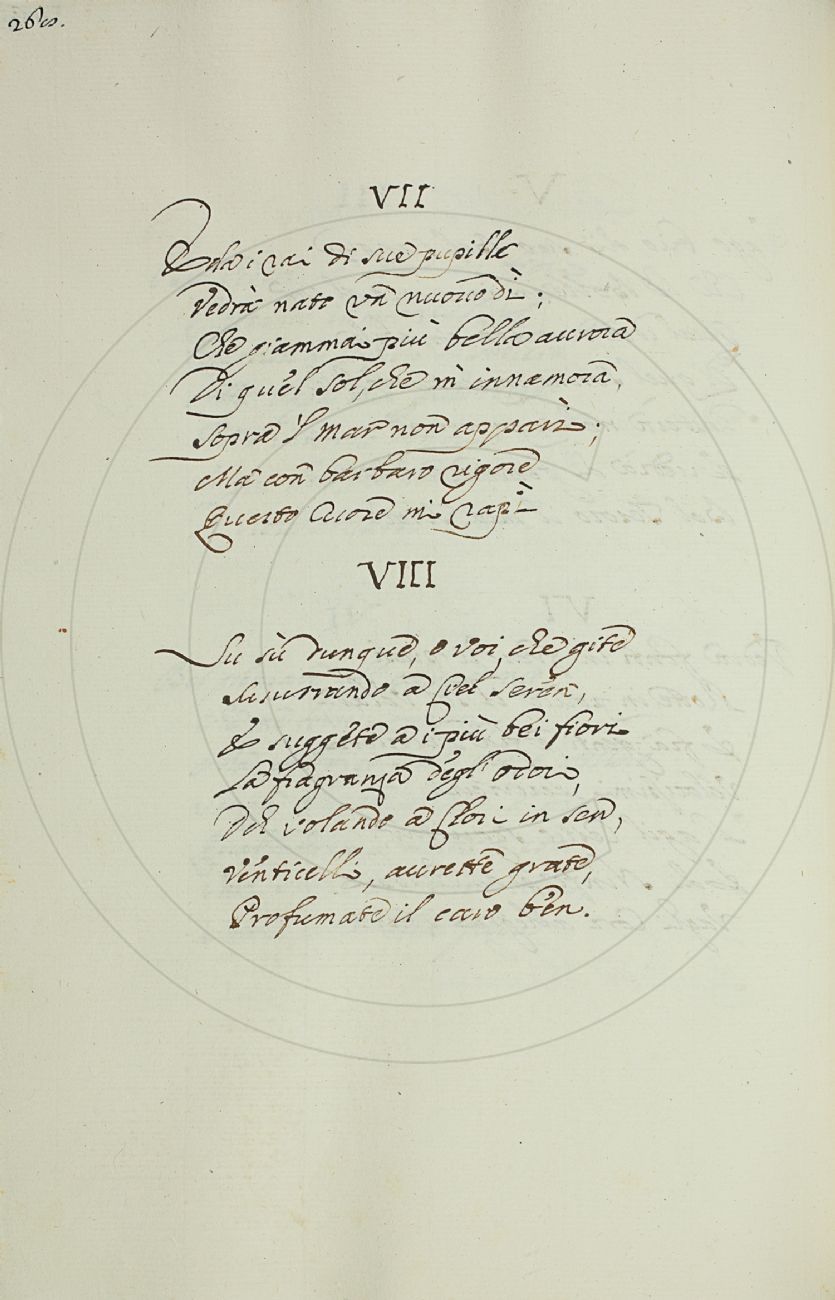 VII
E da i rai di sue pupille
Vedrà nato un nuouo dì;
Che giammai più bella aurora
Di quel sol, che m' innamora,
Sopra 'l mar non apparì;
Ma con barbaro rigore
Questo Cuore mi rapì
VIII
Su sù dunque, o voi, che gite
Susurrando a Ciel seren,
E suggete a i più bei fiori
La fragranza degl' odori,
Deh volando a Clori in sen,
Venticelli, aurette grate,
Profumate il caro ben.